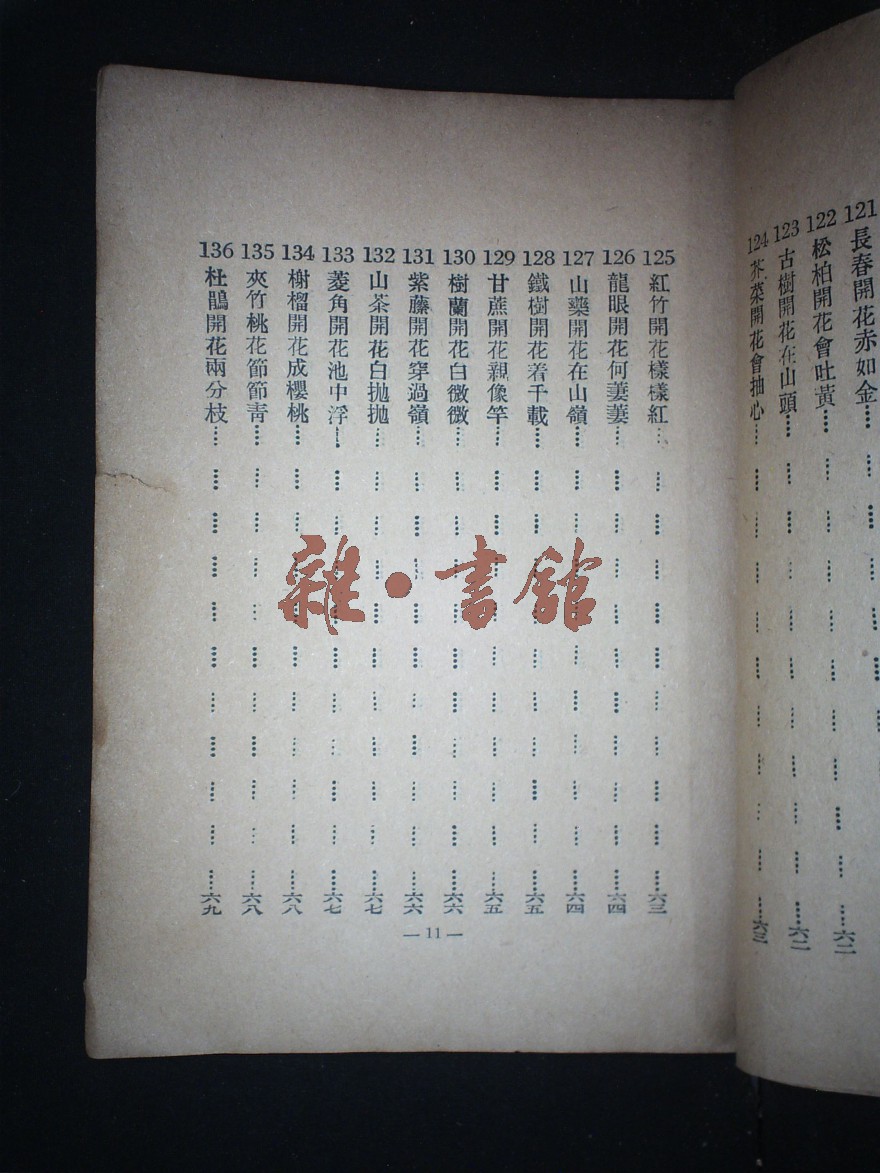 121 長春開花赤如金……六二
122 松柏開花會吐黃……六二
123 古樹開花在山頭……六二
124 芥菜開花會抽心……六三
125 紅竹開花樣樣紅……六三
126 龍眼開花何萋萋……六四
127 山藥開花在山嶺……六四
128 鐵樹開花着千載……六五
129 甘蔗開花親像竿……六五
130 樹蘭開花白微微……六六
131 紫藤開花穿過嶺……六六
132 山茶開花白拋拋……六七
133 菱角開花池中浮……六七
134 榭榴開花成櫻桃……六八
135 夾竹桃花節節青……六八
136 杜鵑開花兩分枝……六九
— 11 —
雜·書館